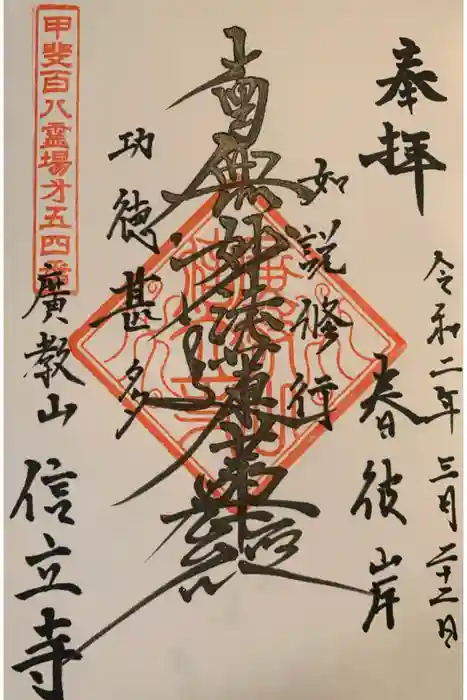 奉拝
令和二年 三月二十二日
春彼岸
如説修行
南無妙法蓮華経
功徳甚多
甲斐百八霊場才五四番
廣教山
信立寺